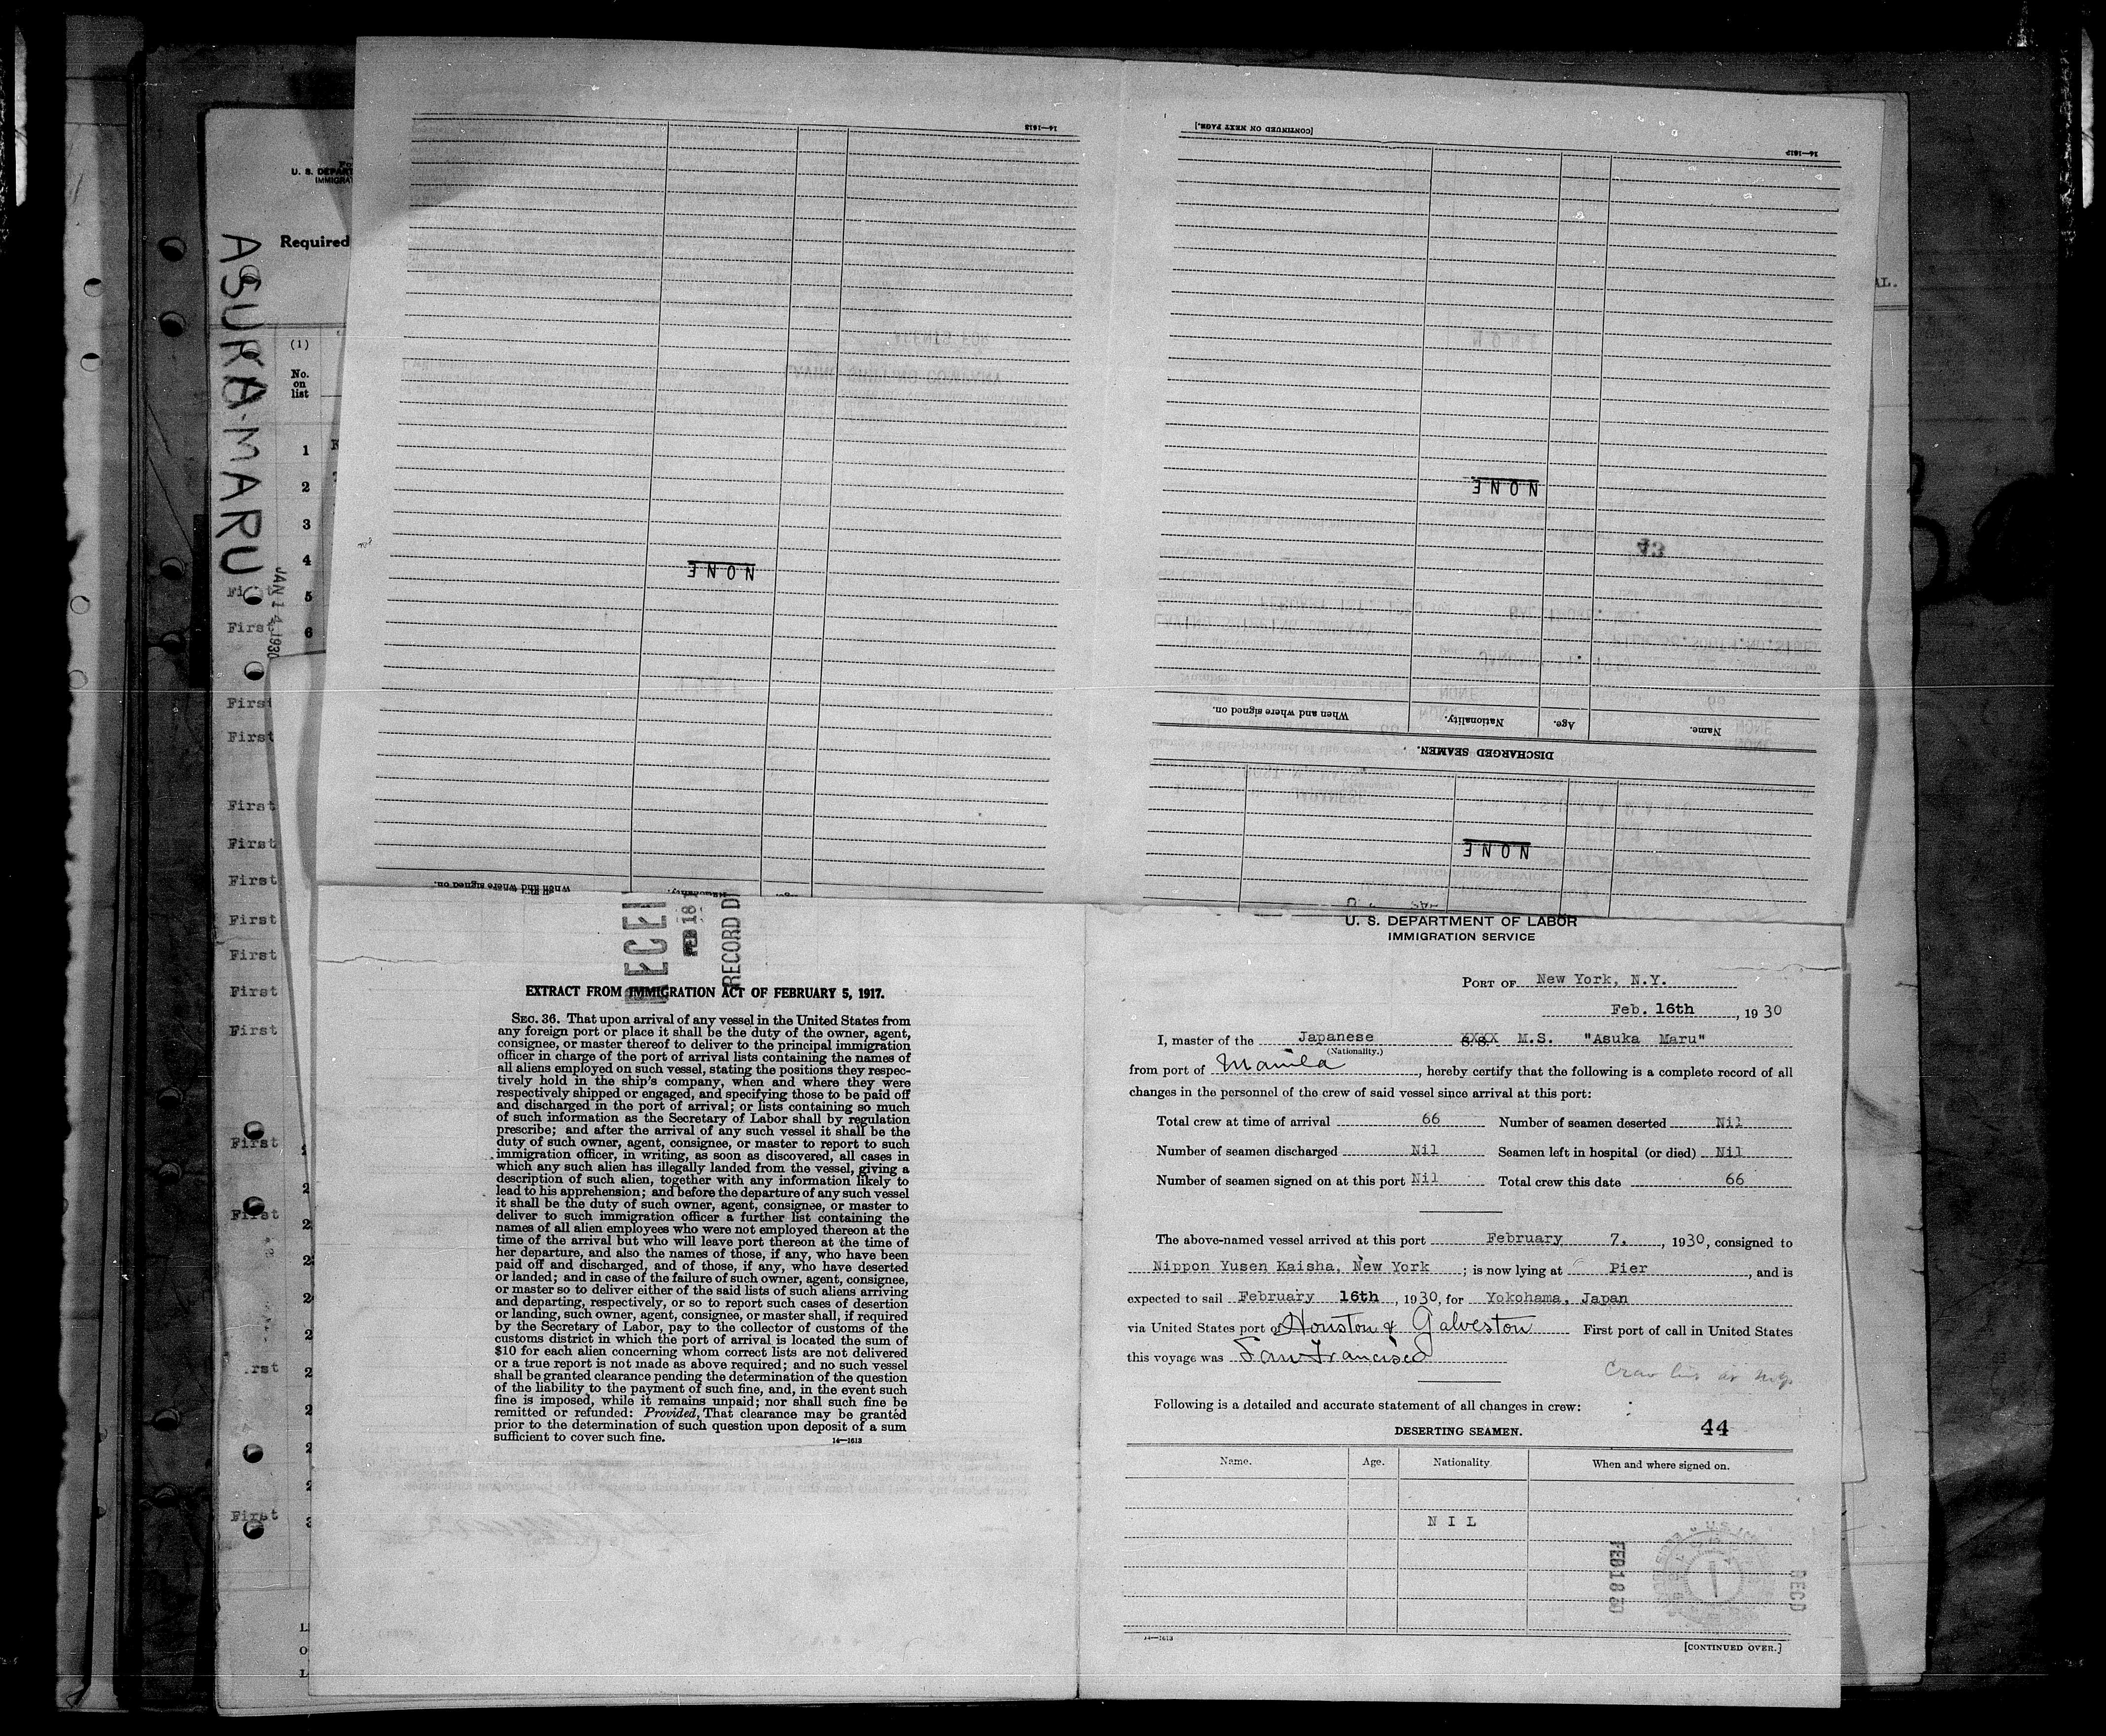 ASUKA-MARU
JAN 14 1930
U. S. DEPART
IMMIGRAT
Required
(1)
No.
on
list
1
2
3
4
5
6
First
First
First
First
First
First
First
First
First
First
First
First
First
AL.
14—1613
NONE
When and where signed on.
[CONTINUED ON NEXT PAGE.]
14—1613
NONE
43
When and where signed on.
Nationality.
Age.
Name.
DISCHARGED SEAMEN.
NONE
FEB 18
RECORD DI
EXTRACT FROM IMMIGRATION ACT OF FEBRUARY 5, 1917.
SEC. 36. That upon arrival of any vessel in the United States from
any foreign port or place it shall be the duty of the owner, agent,
consignee, or master thereof to deliver to the principal immigration
officer in charge of the port of arrival lists containing the names of
all aliens employed on such vessel, stating the positions they respec-
tively hold in the ship's company, when and where they were
respectively shipped or engaged, and specifying those to be paid off
and discharged in the port of arrival; or lists containing so much
of such information as the Secretary of Labor shall by regulation
prescribe; and after the arrival of any such vessel it shall be the
duty of such owner, agent, consignee, or master to report to such
immigration officer, in writing, as soon as discovered, all cases in
which any such alien has illegally landed from the vessel, giving a
description of such alien, together with any information likely to
lead to his apprehension; and before the departure of any such vessel
it shall be the duty of such owner, agent, consignee, or master to
deliver to such immigration officer a further list containing the
names of all alien employees who were not employed thereon at the
time of the arrival but who will leave port thereon at the time of
her departure, and also the names of those, if any, who have been
paid off and discharged, and of those, if any, who have deserted
or landed; and in case of the failure of such owner, agent, consignee,
or master so to deliver either of the said lists of such aliens arriving
and departing, respectively, or so to report such cases of desertion
or landing, such owner, agent, consignee, or master shall, if required
by the Secretary of Labor, pay to the collector of customs of the
customs district in which the port of arrival is located the sum of
$10 for each alien concerning whom correct lists are not delivered
or a true report is not made as above required; and no such vessel
shall be granted clearance pending the determination of the question
of the liability to the payment of such fine, and, in the event such
fine is imposed, while it remains unpaid; nor shall such fine be
remitted or refunded: Provided, That clearance may be granted
prior to the determination of such question upon deposit of a sum
sufficient to cover such fine.
14—1613
U. S. DEPARTMENT OF LABOR
IMMIGRATION SERVICE
PORT OF New York, N.Y.
Feb. 16th, 1930
I, master of the Japanese S.S. XXXX M.S. "Asuka Maru"
(Nationality.)
from port of Manila, hereby certify that the following is a complete record of all
changes in the personnel of the crew of said vessel since arrival at this port:
Total crew at time of arrival 66 Number of seamen deserted Nil
Number of seamen discharged Nil Seamen left in hospital (or died) Nil
Number of seamen signed on at this port Nil Total crew this date 66
The above-named vessel arrived at this port February 7., 1930, consigned to
Nippon Yusen Kaisha, New York; is now lying at Pier, and is
expected to sail February 16th, 1930, for Yokohama, Japan
via United States port of Houston & Galveston First port of call in United States
this voyage was San Francisco
Following is a detailed and accurate statement of all changes in crew:
DESERTING SEAMEN.
44
Name. Age. Nationality When and where signed on.
NIL
FEB 18 30
RECD
14—1613
[CONTINUED OVER.]